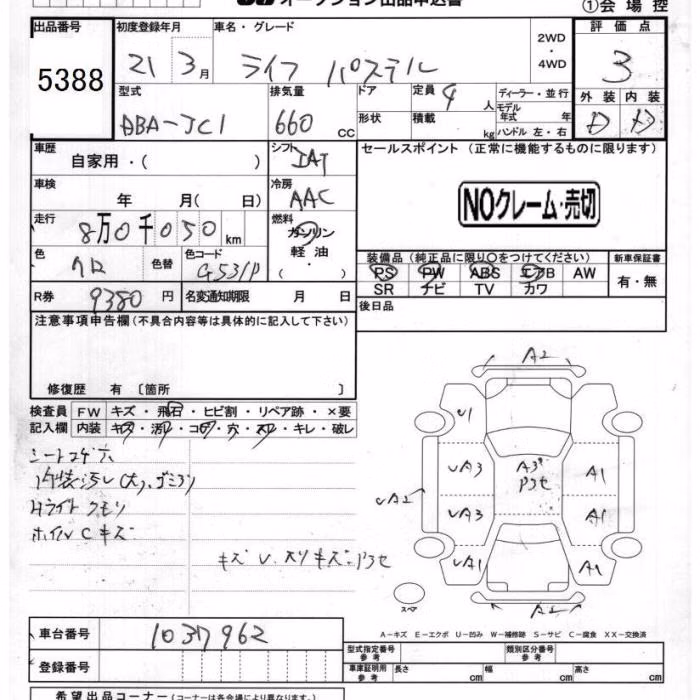 オークション出品申込書
①会場控
出品番号 初度登録年月 車名・グレード 2WD・4WD 評価点
5388 21 3月 ライフ パステル 3
型式 排気量 ドア 定員 4人 ディーラー・並行 外装 内装
DBA-JC1 660 CC 形状 積載 kg モデル年式 年 ハンドル 左・右 D D
車歴 自家用・( ) シフト IAT セールスポイント (正常に機能するものに限ります)
車検 年 月(日) 冷房 AAC NOクレーム・売切
走行 8万0千050km 燃料 ガソリン 軽油 ・( )
色 クロ 色替 色コード G531P
装備品 (純正品に限り○をつけてください) 新車保証書
PS PW ABS エアB AW 有・無
SR ナビ TV カワ
R券 9380円 名変通知期限 月 日 後日品
注意事項申告欄 (不具合内容等は具体的に記入して下さい)
修復歴 有 〔箇所 〕
検査員 FW キズ・飛石・ヒビ割・リペア跡・×要
記入欄 内装 キズ・汚レ・コゲ・穴・スレ・キレ・破レ
シートコゲ穴
内装汚レ(大)
Hライトクモリ
ホイルCキズ
キズ U
A2
U1
UA3 A3 A1
UA2
UA3 A1
UA1 A1
A2
スペア
A-キズ E-エクボ U-凹み W-補修跡 S-サビ C-腐食 XX-交換済
車台番号 1037962
登録番号
型式指定番号 参考 類別区分番号 参考
車庫証明用 参考 長さ cm 幅 cm 高さ cm
希望出品コーナー (コーナーは各会場により異なります)